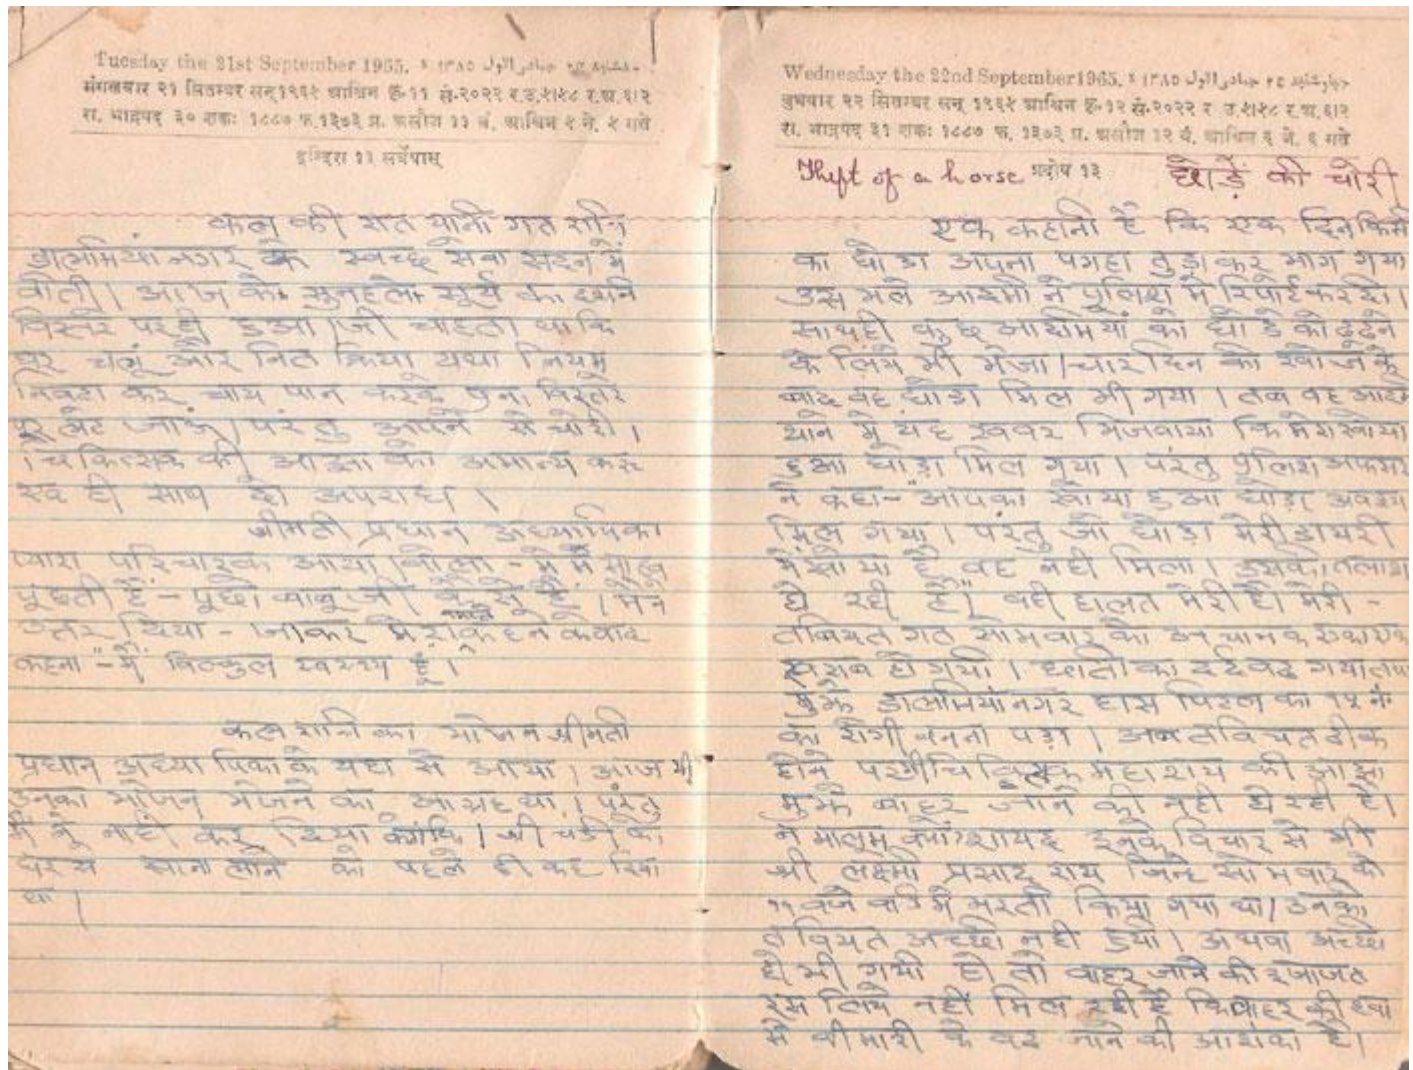 Tuesday the 21st September 1965.
मंगलवार २१ सितम्बर सन् १९६५ आश्विन कृ.११ सं.२०२२
रा. भाद्रपद ३० शकः १८८७ फ. १३७३ प्र. आश्विन ५ ने. ५ गते
इन्दिरा ११ सर्वेषाम्
कल की रात यानी गत रात्रि
डालमियां नगर के स्वच्छ सेवा सदन में
बीती। आज के सुनहले सूर्य का दर्शन
विस्तर पर ही हुआ। जी चाहता था कि
घर चलूं और नित क्रिया यथा नियम
निबटा कर चाय पान करके पुनः विस्तरे
पर लेट जाऊं। परंतु अपने से चोरी।
चिकित्सक की आज्ञा को अमान्य कर
स्व ही साथ हो अपराध।
श्रीमती प्रधान अध्यापिका
प्यारा परिचारक आया। बोला - मे मे साहब
पूछती हैं - पूछो बाबू जी कैसे हैं। मैंने
उत्तर दिया - जाकर मेरा कहने के बाद
कहना "मैं बिल्कुल स्वस्थ हूं।"
कल रात्रि का भोजन श्रीमती
प्रधान अध्यापिका के यहां से आया। आज भी
उनका भोजन भेजने का आग्रह था। परंतु
मैं ने नाही कर दिया क्योंकि श्री के
घर से खाना लाने को पहले ही कह दिया
था।
Wednesday the 22nd September 1965.
बुधवार २२ सितम्बर सन् १९६५ आश्विन कृ.१२ सं.२०२२
रा. भाद्रपद ३१ शकः १८८७ फ. १३७३ प्र. आश्विन ६ ने. ६ गते
Theft of a horse प्रदोष १३ घोड़ें की चोरी
एक कहानी है कि एक दिन किसी
का घोडा अपना पगहा तुड़ा कर भाग गया
उस भले आदमी ने पुलिश मे रिपोर्ट कर दी।
साथही कुछ आदमियों को घोडे को ढूंढने
के लिये भी भेजा। चार दिन की खोज के
बाद वह घोडा मिल भी गया। तब वह आदमी
थाने में यह खबर भिजवाया कि मेरा खोया
हुआ घोड़ा मिल गया। परंतु पुलिश अफसर
ने कहा- "आपका खोया हुआ घोड़ा अवश्य
मिल गया। परंतु जो घोड़ा मेरी डायरी
मे खोया है वह नही मिला। उसकी तलाश
हो रही है।" वही हालत मेरी है। मेरी -
तबियत गत सोमवार को अचानक एकाएक
खराब हो गयी। छाती का दर्द बढ गया तथा
मुझे डालमियांनगर हास पिटल का १५ नं
का रोगी बनना पड़ा। अब तबियत ठीक
होने पर भी चिकित्सक महाशय की आज्ञा
मुझे बाहर जाने की नही हो रही है।
न मालूम क्यों? शायद इनके विचार से भी
श्री लक्ष्मी प्रसाद राय जिन्हे सोमवार को
११ बजे वार्ड में भरती किया गया था। उनकी
तबियत अच्छी नही हुयी। अथवा अच्छी
हो भी गयी हो तो बाहर जाने की इजाजत
इस लिये नहीं मिल रही है कि बाहर की हवा
में बीमारी के बढ जाने की आशंका है।